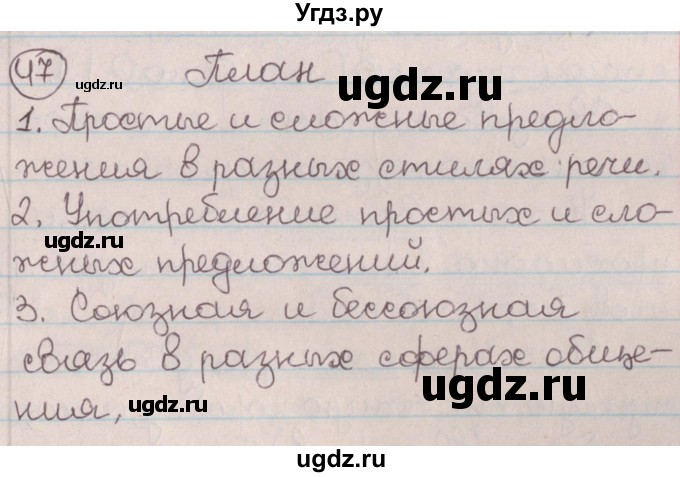 Угдз.ру
47 План
ugdz.ru
ugdz.ru
1. Простые и сложные предло-
жения в разных стилях речи.
ugdz.ru
2. Употребление простых и сло-
ugdz.ru
жных предложений.
ugdz.ru
3. Союзная и бессоюзная
связь в разных сферах обще-
ugdz.ru
ния,
ugdz.ru
ugdz.ru
ugdz.ru